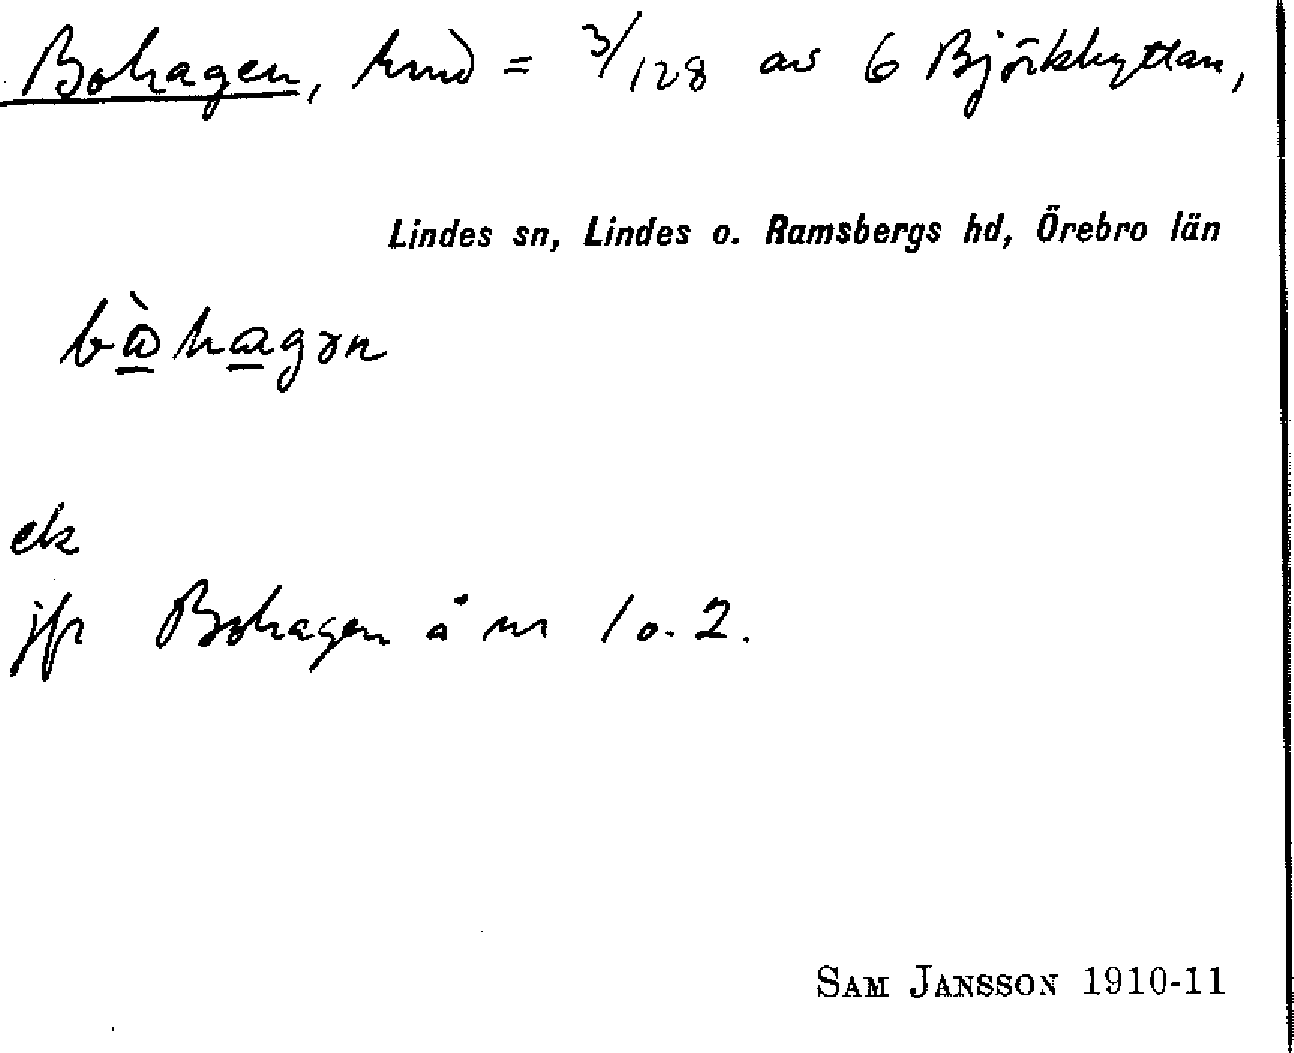 Bohagen, hmd = 3/128 av 6 Björkhyttan,
Lindes sn, Lindes o. Ramsbergs hd, Örebro län
bὼhagən
ek
jfr Bohagen å nr 1 o. 2.
SAM JANSSON 1910-11